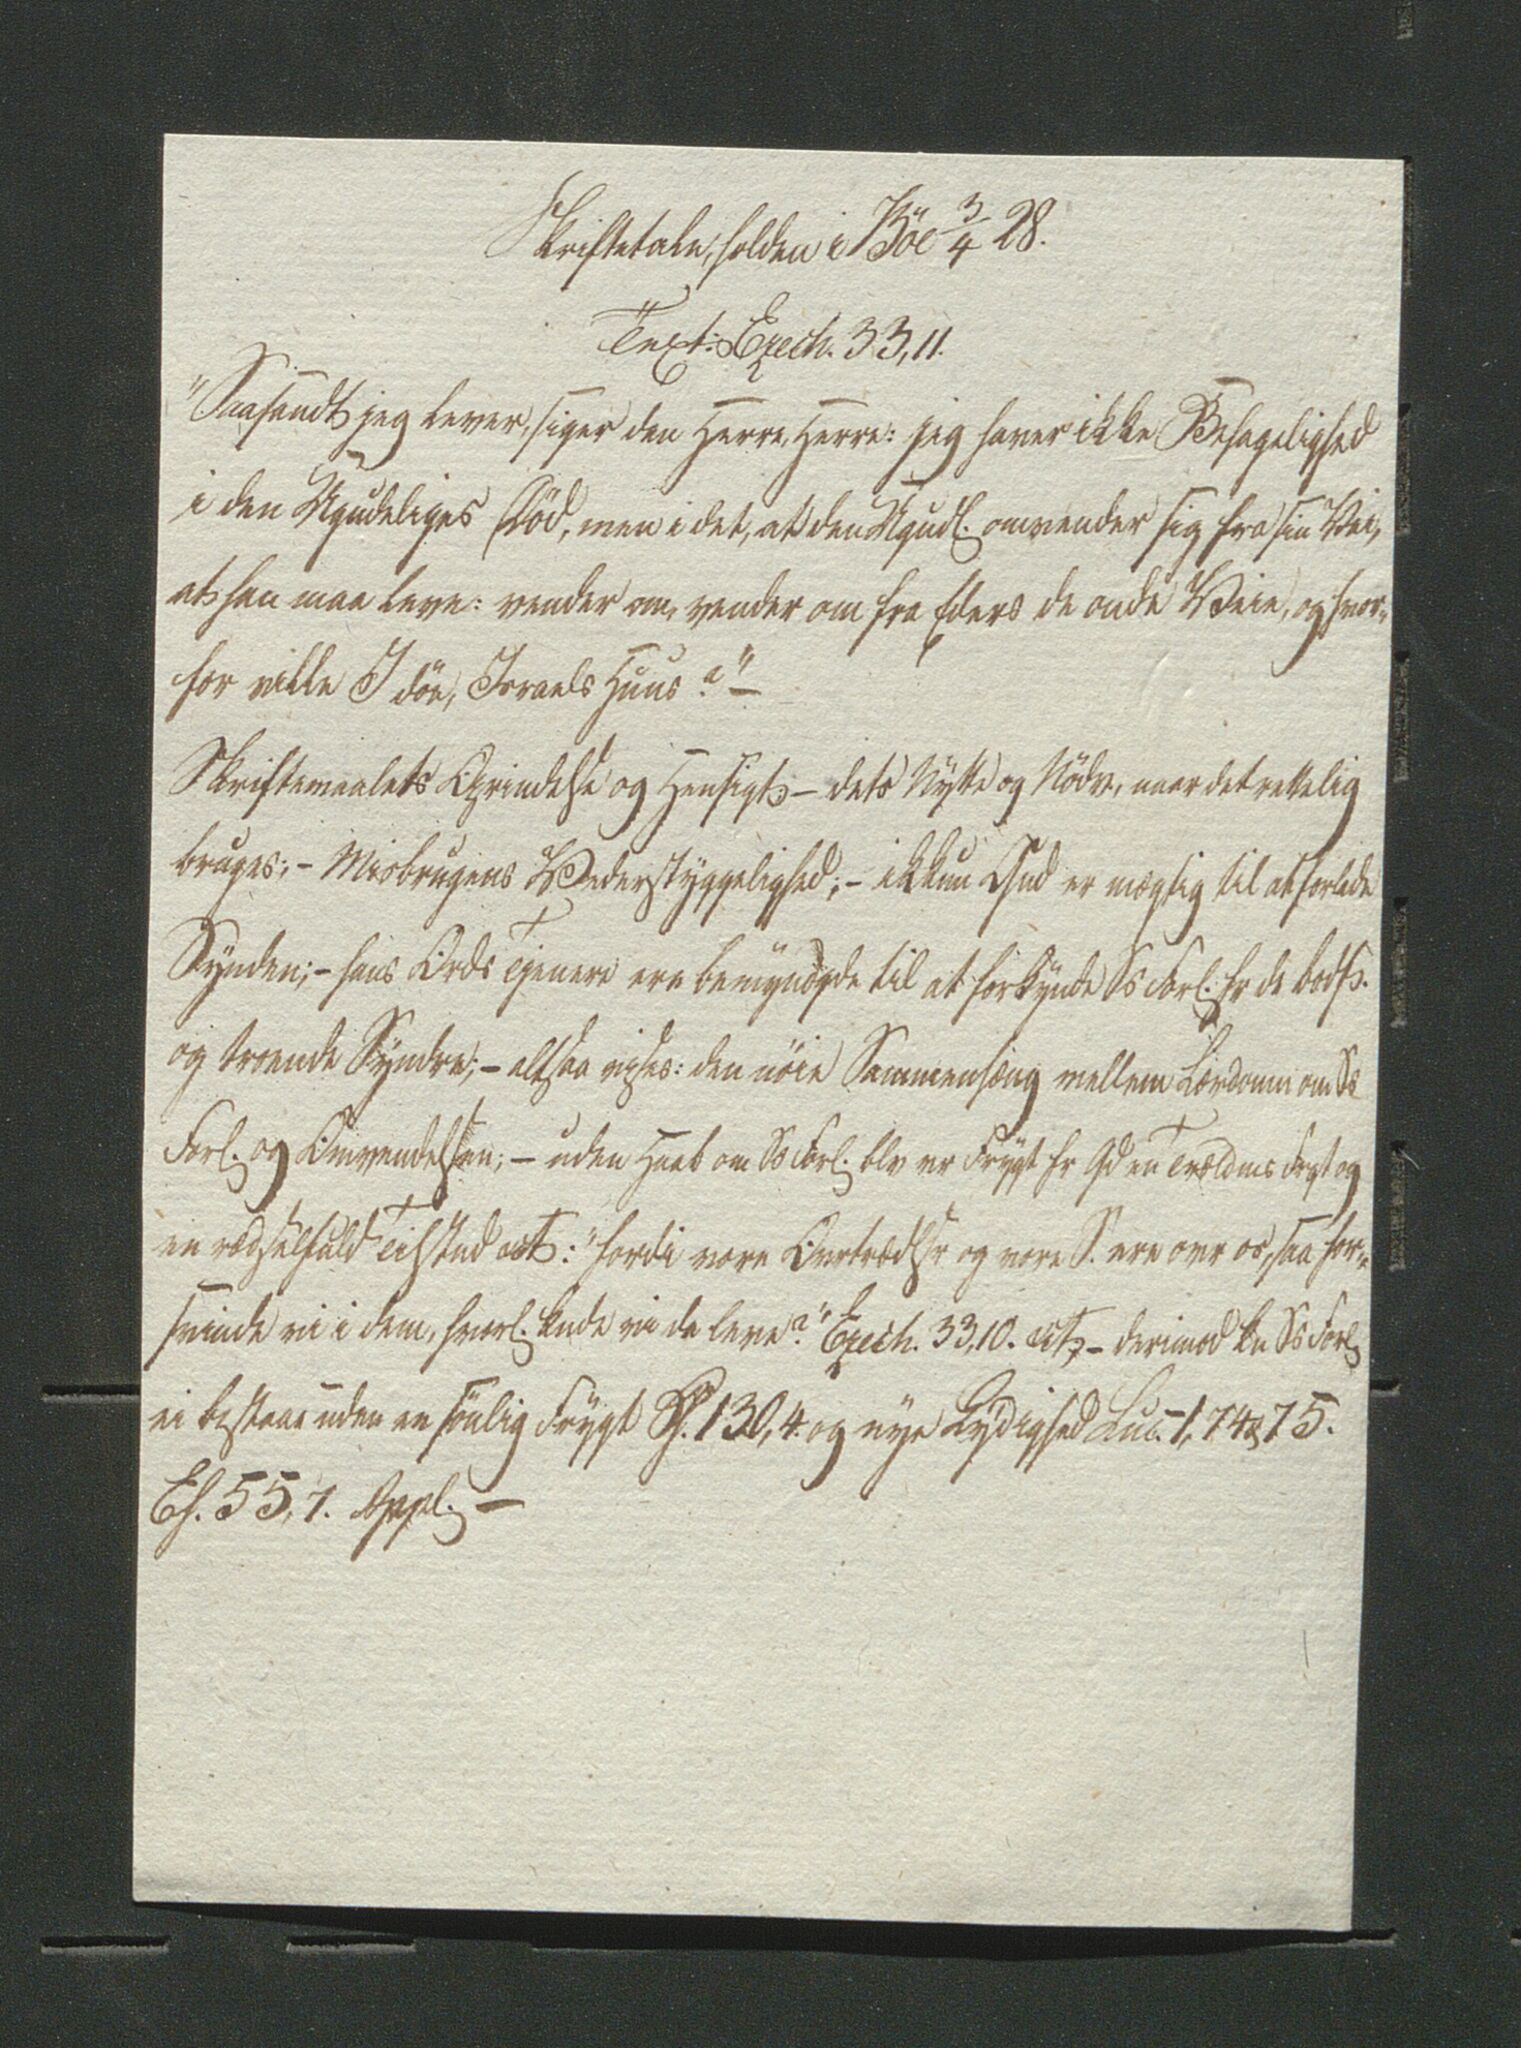 Skriftetale, holden i Böe 3/4 28.
Text: Ezech. 33,11.
"Saasandt jeg lever, siger den Herre, Herre: jeg haver ikke Behagelighed
i den Ugudeliges Död, men i det, at den Ugudl. omvender sig fra sin Vei,
at han maa leve: vender om, vender om fra Eders de onde Veie, og hvor-
for ville I döe, Israels Huus?" —
Skriftemaalets Oprindelse og Hensigt – dets Nytte og Nödv, naar det rettelig
bruges; – Misbrugens Vederstyggelighed; – ikkun Gud er mægtig til at forlade
Synden; – hans Ords Tjenere ere bemyndigde til at forkynde Ss Forl. fr de bodf.
og troende Syndre; – altsaa vises: den nöie Sammenhæng mellem Lærdomm om Ss
Forl. og Omvendelsen; – uden Haab om Ss Forl. blv vr Frygt fr Gd en Trældms Frgt og
en rædselfuld Tilstand: "fordi vore Ovrtrædlsr og vore S. ere ovr os, saa for-
svinde vi i dem, hvorl. kude vi da leve?" Ezech. 33,10. – derimod kn Ss Forl
ei bestaae uden en sönlig Frygt Ps. 130,4. og nye Lydighed Luc. 1, 74 & 75.
Es. 55,7. Appl. —